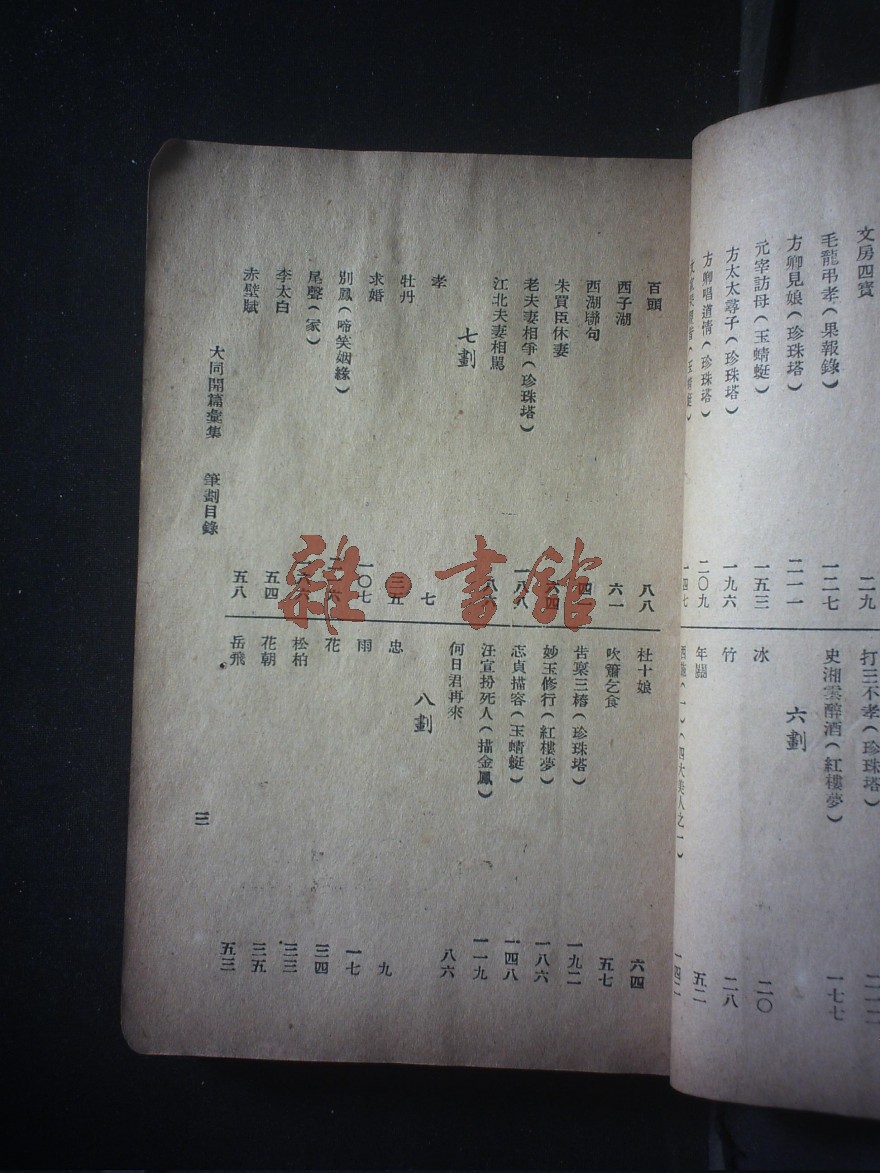 文房四寶 二九
毛龍弔孝(果報錄) 一二七
方卿見娘(珍珠塔) 二一一
元宰訪母(玉蜻蜓) 一五三
方太太尋子(珍珠塔) 一九六
方卿唱道情(珍珠塔) 二〇九
一四七
打三不孝(珍珠塔)
史湘雲醉酒(紅樓夢) 一七七
六劃
冰 二〇
竹 二八
年關 五二
(四大美人之一) 一四二
百頭 八八
西子湖 六一
西湖聯句
朱買臣休妻
老夫妻相爭(珍珠塔) 一八八
江北夫妻相罵
七劃
孝 七
牡丹 三五
求婚 一〇七
別鳳(啼笑姻緣)
尾聲(家)
李太白 五四
赤壁賦 五八
杜十娘 六四
吹簫乞食 五七
告稟三樁(珍珠塔) 一九二
妙玉修行(紅樓夢) 一八六
志貞描容(玉蜻蜓) 一四八
汪宣扮死人(描金鳳) 一一九
何日君再來 八六
八劃
忠 九
雨 一七
花 三四
松柏 三三
花朝 三五
岳飛 五三
大同開篇彙集 筆劃目錄 三
雜·書館